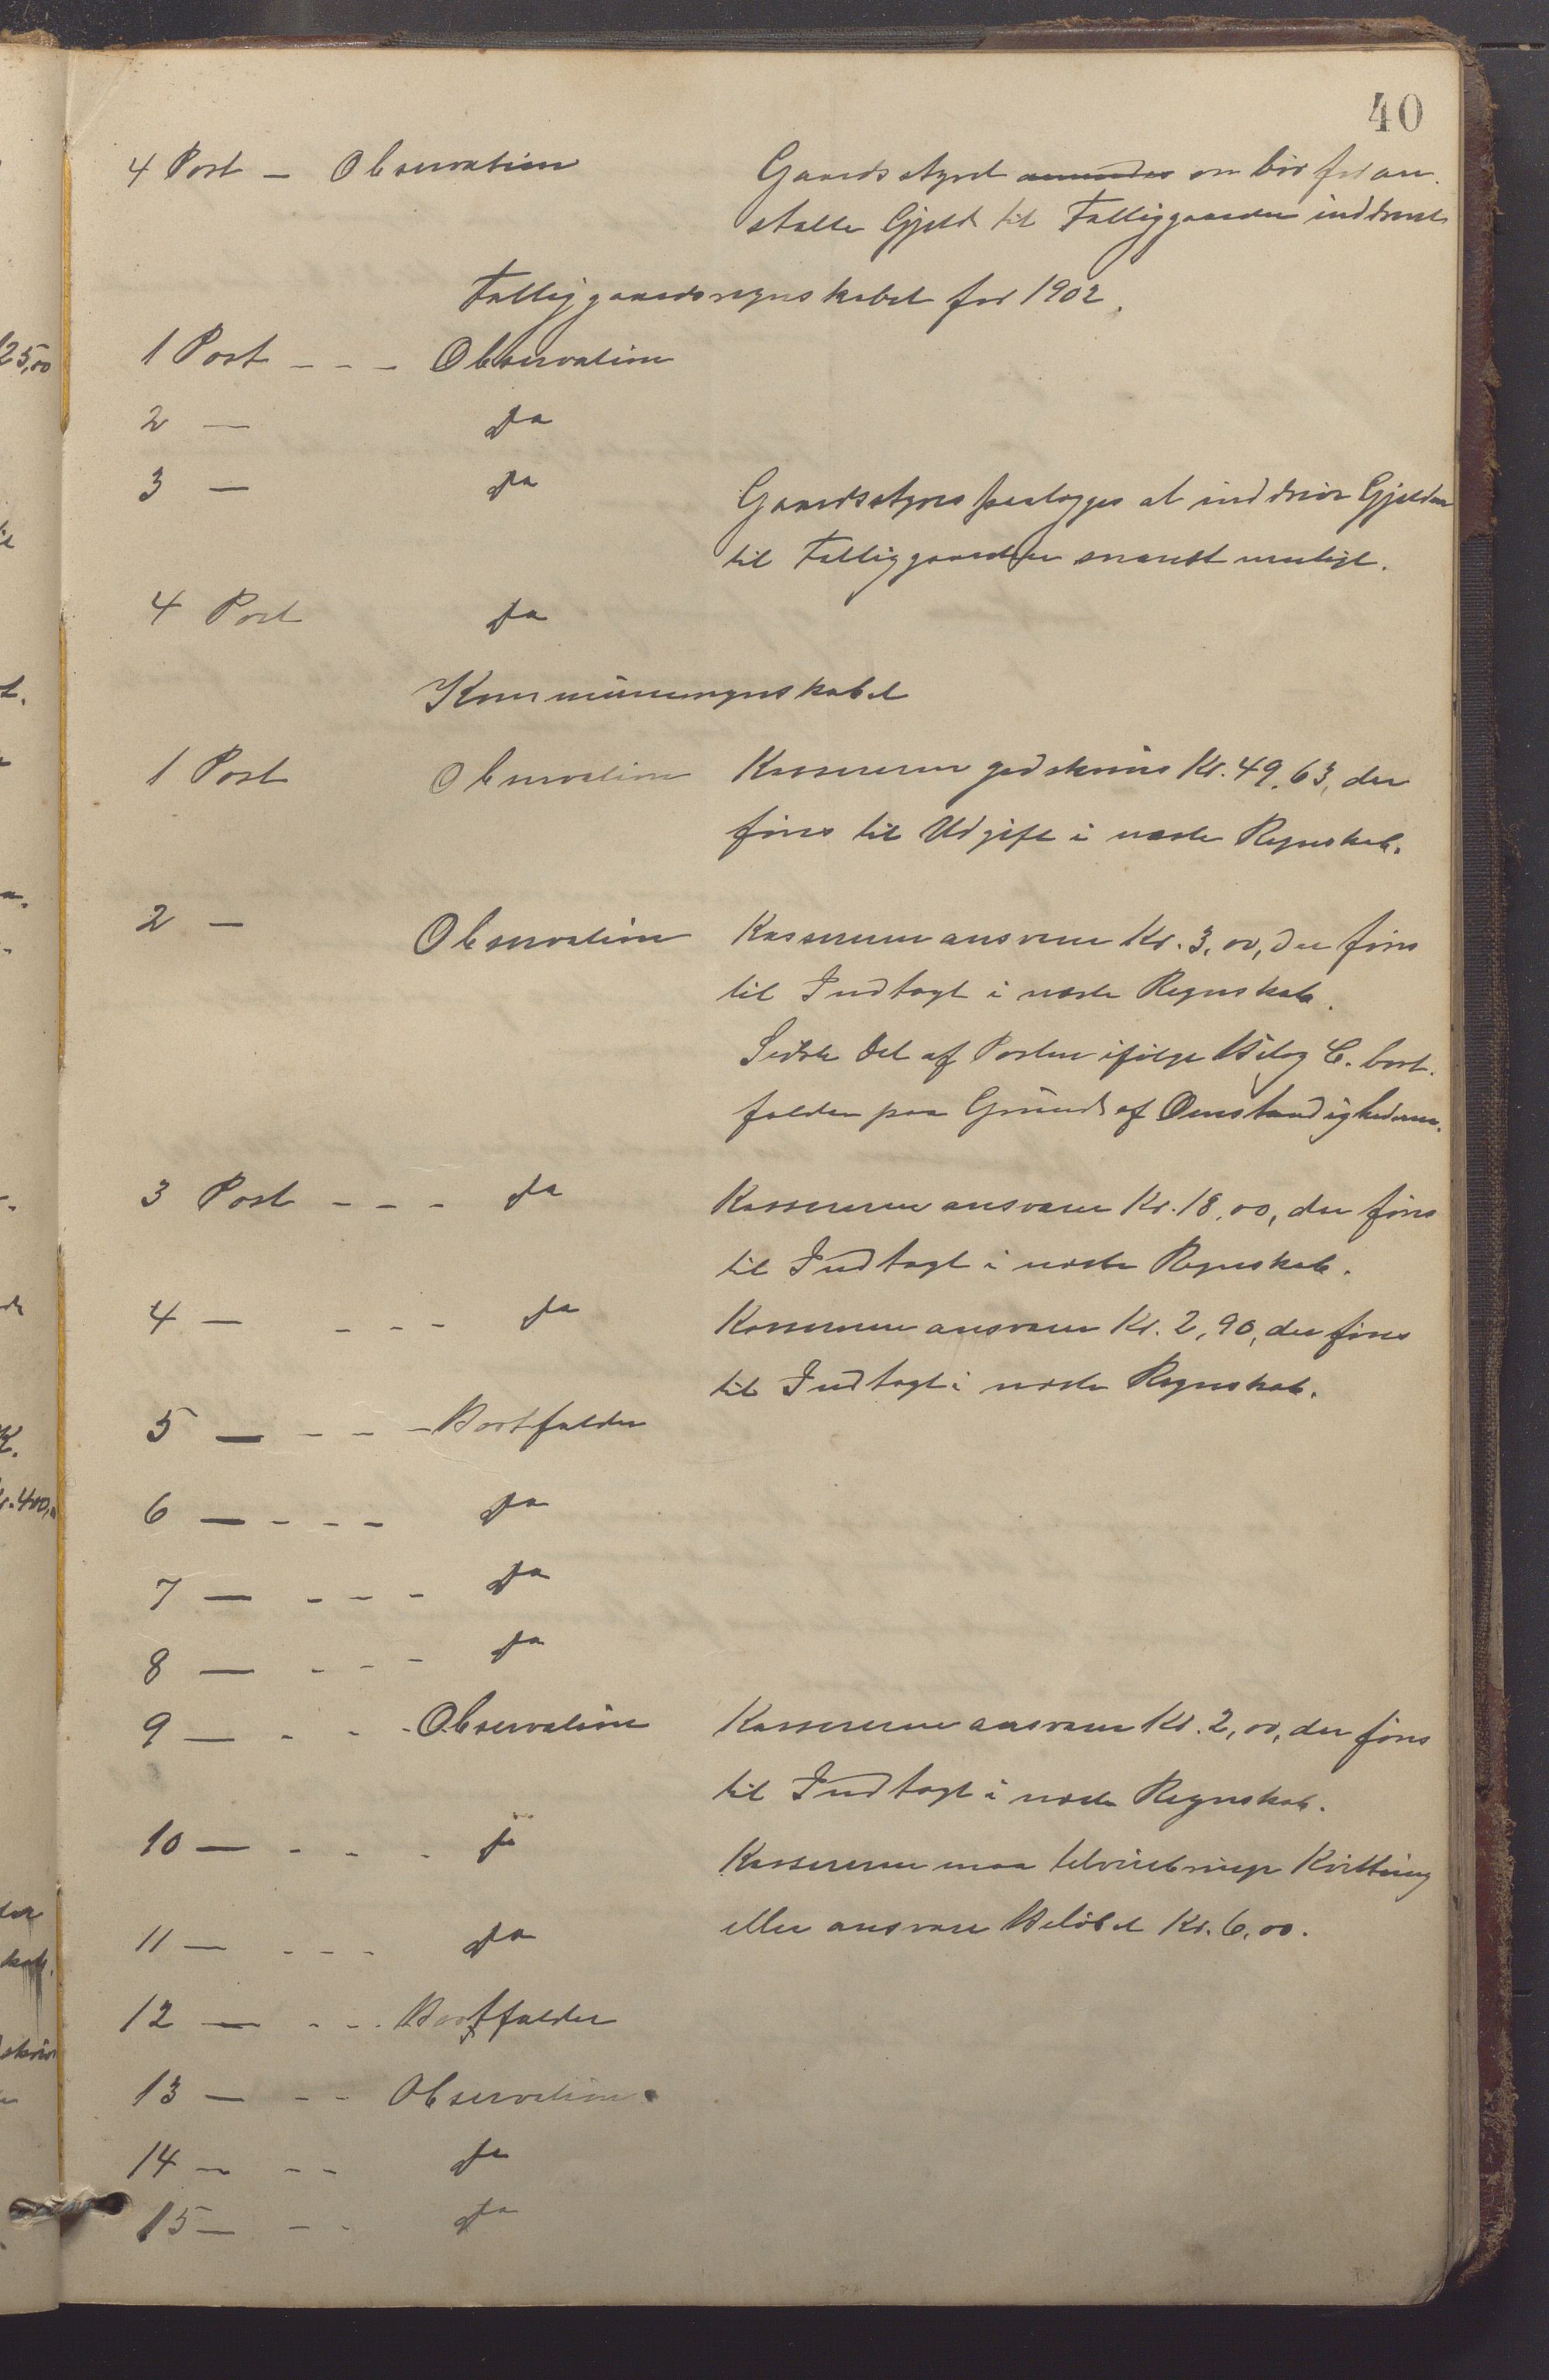 40
4 Post – Observation Gaardsstyret anmodes om bør for an-
stalte Gjeld til Fattiggaarden inddrevet
Fattiggaardsregnskabet for 1902.
1 Post - - - Observation
2 — Ja
3 — Ja Gaardsstyret paalægges at inddrive Gjelden
til Fattiggaarden snarest muligt.
4 Post Ja
Kommuneregnskabet
1 Post Observation Kassereren godskrives Kr. 49,63, der
føres til Udgift i næste Regnskab.
2 — Observation Kassereren ansvarer Kr. 3,00, der føres
til Indtægt i næste Regnskab.
Sidste Del af Posten ifølge Bilag C. bort-
falder paa Grund af Omstændighederne.
3 Post - - - Ja Kassereren ansvarer Kr. 18,00, der føres
til Indtægt i næste Regnskab.
4 — - - - Ja Kassereren ansvarer Kr. 2,90, der føres
til Indtægt i næste Regnskab.
5 — - - - Bortfalder
6 — - - - Ja
7 — - - - Ja
8 — - - - Ja
9 — - - - Observation Kassereren ansvarer Kr. 2,00, der føres
til Indtægt i næste Regnskab.
10 — - - - Ja Kassereren maa tilveiebringe Kvittering
eller ansvare Beløbet Kr. 6,00.
11 — - - - Ja
12 — - - - Bortfalder
13 — - - Observation.
14 — - - Ja
15 — - - Ja